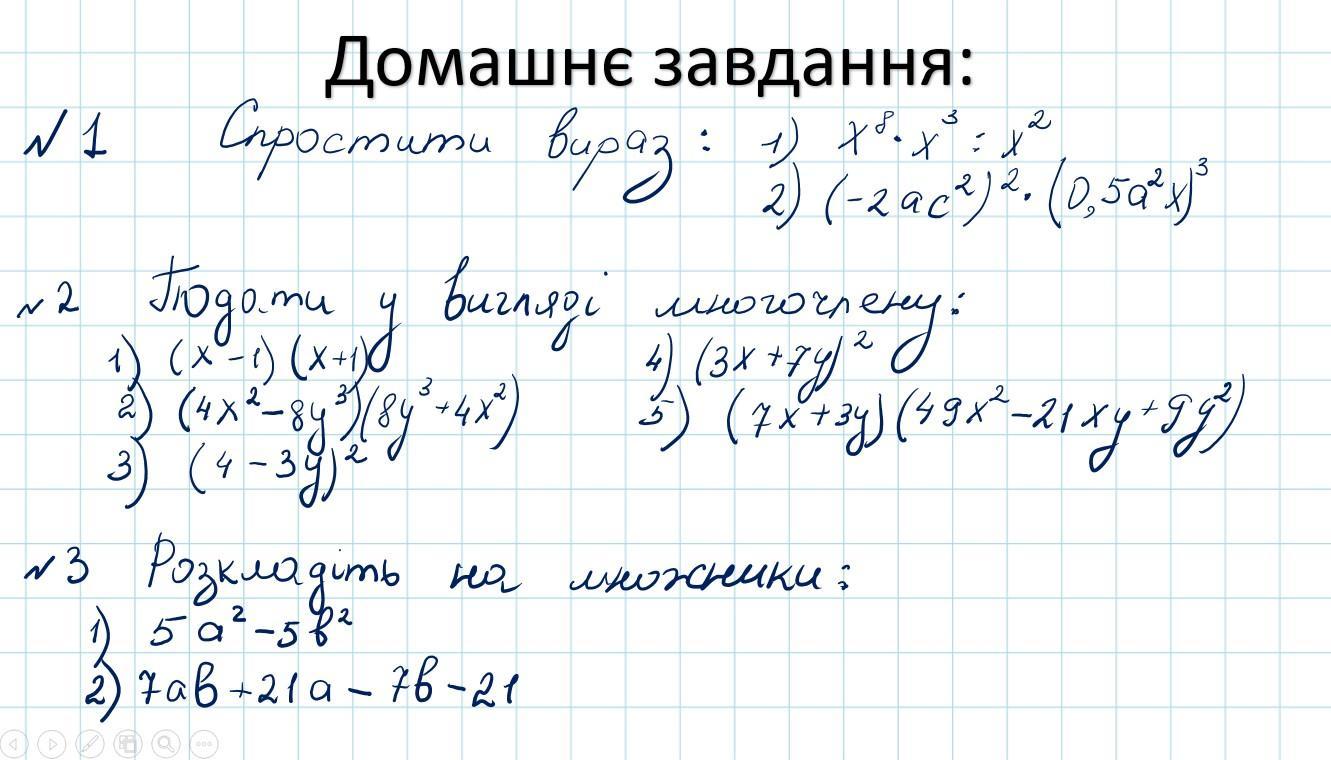 Домашнє завдання:
№1 Спростити вираз: 1) x⁸·x³ : x²
2) (-2ac²)²·(0,5a²x)³
№2 Подати у вигляді многочлену:
1) (x-1)(x+1) 4) (3x+7y)²
2) (4x²-8y³)(8y³+4x²) 5) (7x+3y)(49x²-21xy+9y²)
3) (4-3y)²
№3 Розкладіть на множники:
1) 5a²-5b²
2) 7ab+21a-7b-21